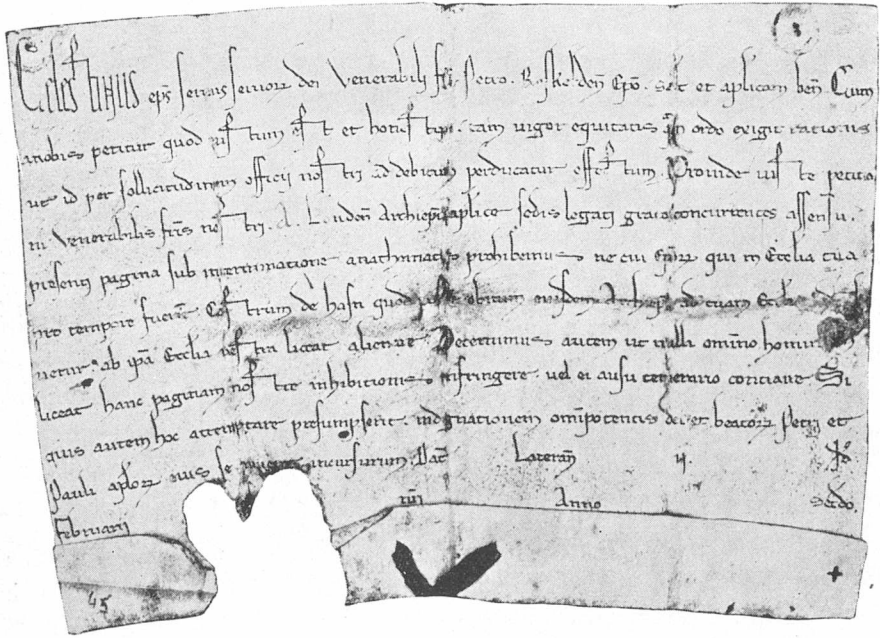 Celestinus eps seruus seruorꝝ dei Venerabili fri Petro. Roskilden Epo. salt et aplicam ben. Cum
a nobis petitur quod iustum est et honestum. tam uigor equitatis qm ordo exigit rationis
ut id per sollicitudinem officii nostri ad debitum perducatur effectum. Proinde iuste petitio
ni Venerabilis fris nostri. A. Lunden Archiepi aplice sedis legati grato concurrentes assensu.
presenti pagina sub interminatione anathematis prohibemus ne cui Eporꝝ qui in Ecclia tua
pro tempore fuerint Castrum de hafn quod post obitum eiusdem Archiepi ad tuam Eccliam
uetur. ab ipa Ecclia uestra liceat alienare Decernimus autem ut nulli omnino hominum
liceat hanc paginam nostre inhibitionis infringere. uel ei ausu temerario contraire Si
quis autem hoc attemptare presumpserit. indignationem omipotentis dei et beatorꝝ Petri et
Pauli aplorꝝ eius se incursurum. Dat Lateran ij.
Februarii Anno scdo.
3
45